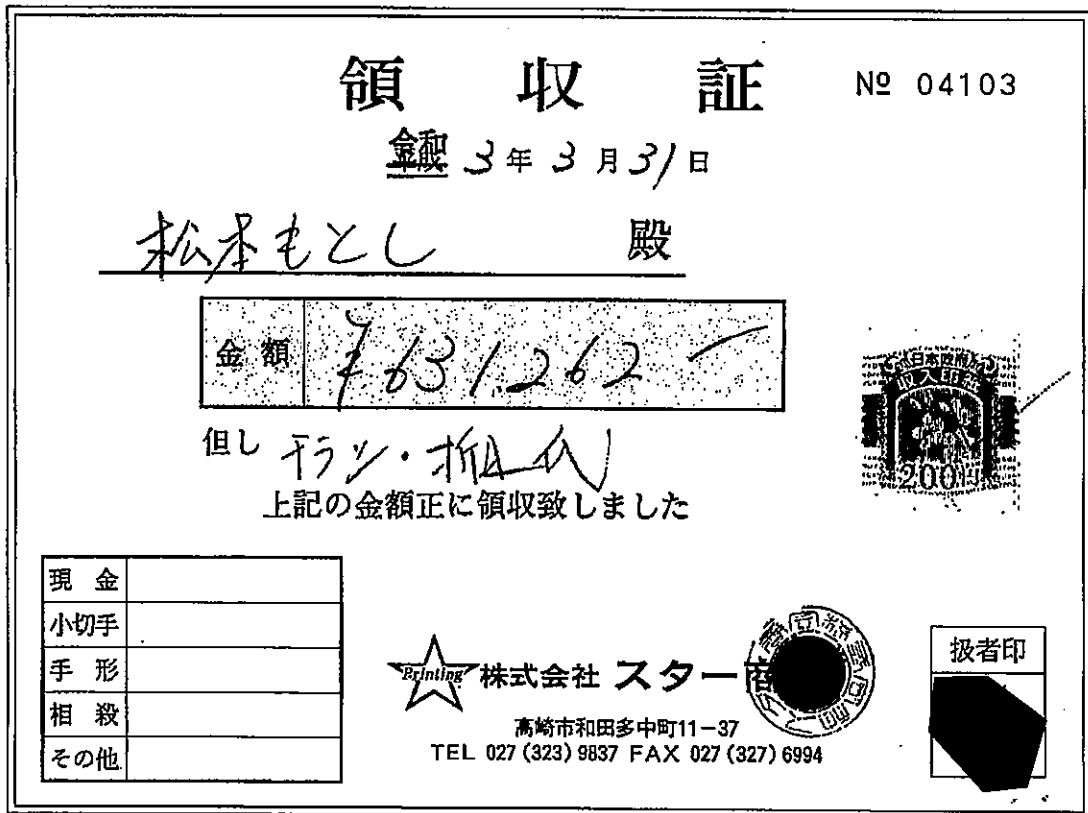 領収証
№ 04103
令和 3年 3月 31日
松本もとし 殿
金額 ¥631,262
但し チラシ・折込代
上記の金額正に領収致しました
日本政府
収入印紙
200円
現金
小切手
手形
相殺
その他
Printing 株式会社 スター商
高崎市和田多中町11-37
TEL 027 (323) 9837 FAX 027 (327) 6994
扱者印